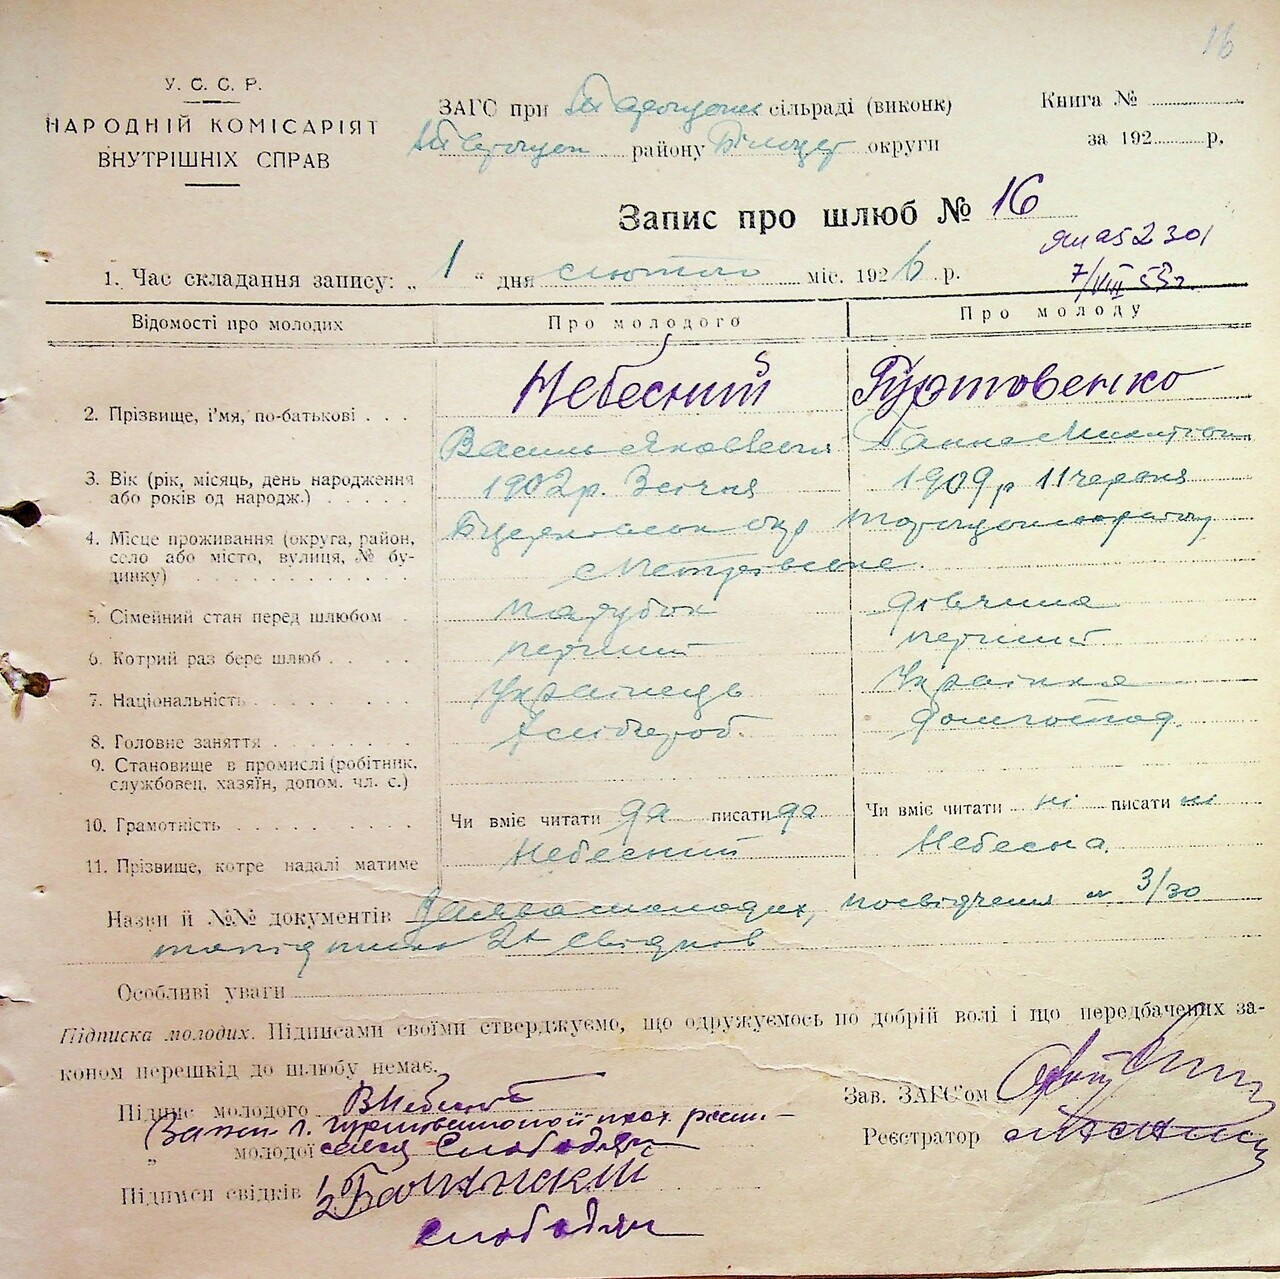 16
У. С. С. Р.
НАРОДНІЙ КОМІСАРІЯТ
ВНУТРІШНІХ СПРАВ
ЗАГС при сільраді (виконк)
району Білоцер округи
Книга №
за 192 р,
Запис про шлюб № 16
7/VIII 53 г.
1. Час складання запису: „ 1 “ дня лютого міс. 1926 р.
Відомості про молодих
Про молодого
Про молоду
2. Прізвище, і'мя, по-батькові . . .
Небесний
Гуртовенко
Василь Яковович
Ганна
3. Вік (рік, місяць, день народження або років од народж.) . . . . .
1902р. 3 січня
1909р 11 червня
4. Місце проживання (округа, район, село або місто, вулиця, № будинку) . . . . . . . . . . .
5. Сімейний стан перед шлюбом .
парубок
дівчина
6. Котрий раз бере шлюб . . . .
перший
перший
7. Національність . . . . . . . .
Українець
Українка
8. Головне заняття . . . . . . . .
хлібороб.
домгоспод.
9. Становище в промислі (робітник, службовец, хазяїн, допом. чл. с.)
10. Грамотність . . . . . . . . .
Чи вміє читати да писати да
Чи вміє читати ні писати ні
11. Прізвище, котре надалі матиме
Небесний
Небесна.
Назви й №№ документів Заява молодих, посвідчення № 3/30
та підписка 2х свідків
Особливі уваги
Підписка молодих. Підписами своїми стверджуємо, що одружуємось по добрій волі і що передбачених за-
коном перешкід до шлюбу немає.
Підпис молодого ВНебесний
„ молодої Слободян
Підписи свідків
Слободян
Зав. ЗАГС'ом
Реєстратор